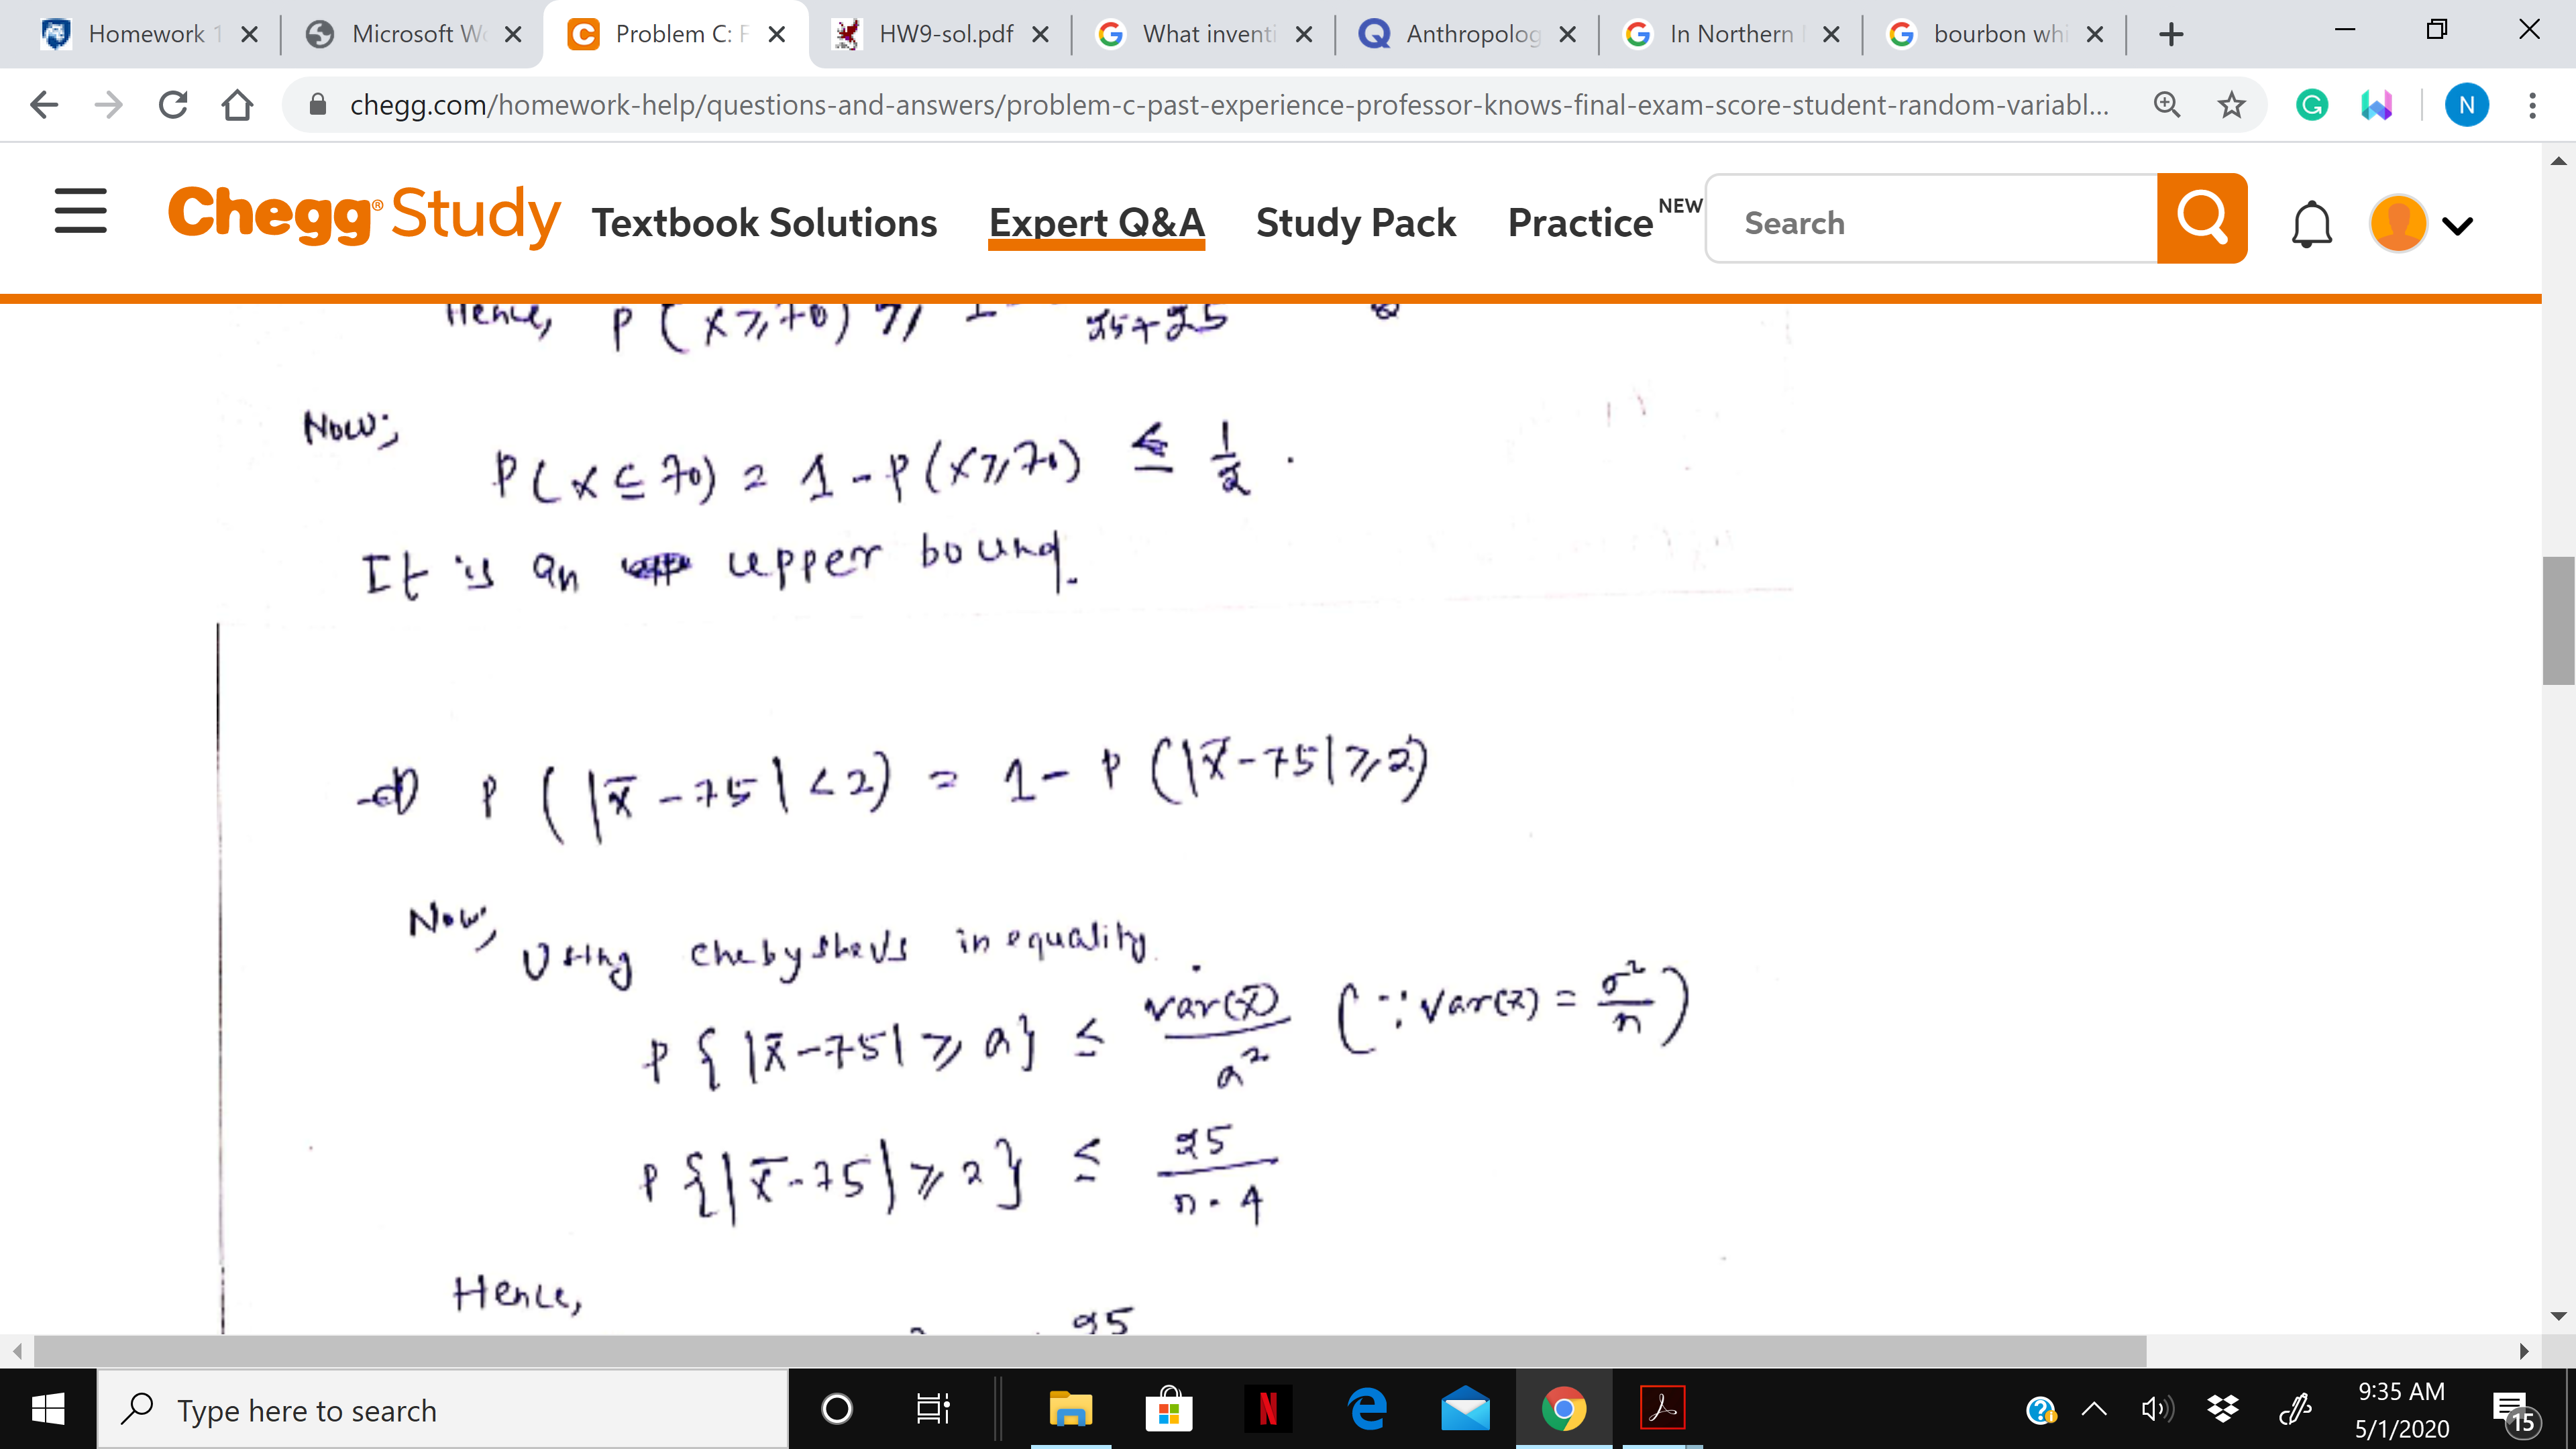 Homework 1
Microsoft Wo
Problem C: F
HW9-sol.pdf
What inventi
Anthropolog
In Northern
bourbon whi
chegg.com/homework-help/questions-and-answers/problem-c-past-experience-professor-knows-final-exam-score-student-random-variabl...
N
Chegg® Study
Textbook Solutions
Expert Q&A
Study Pack
Practice NEW
Search
Hence, P(X ≥ 70) ≥ 1 - 25+25
Now;
P(X ≤ 70) = 1 - P(X ≥ 70) ≤ 1/2.
It is an upper bound.
d) P(|x̄ - 75| < 2) = 1 - P(|x̄ - 75| ≥ 2)
Now, Using chebyshevs inequality.
P{|x̄ - 75| ≥ a} ≤ var(x̄)/a² (∵ var(x̄) = σ²/n)
P{|x̄ - 75| ≥ 2} ≤ 25/n·4
Hence,
25
Type here to search
9:35 AM
5/1/2020
15